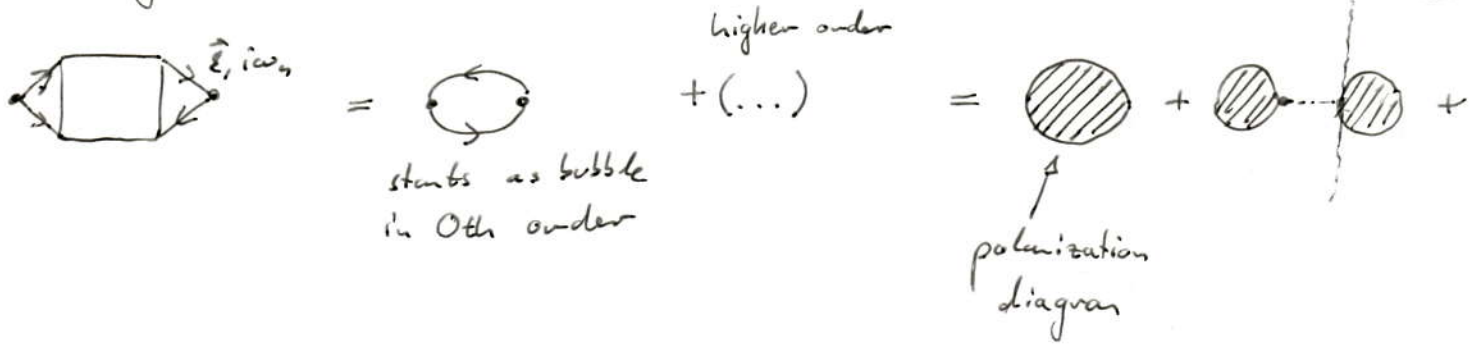 higher order
, iωₙ
= + (...) = + +
starts as bubble
in 0th order
polarization
diagram